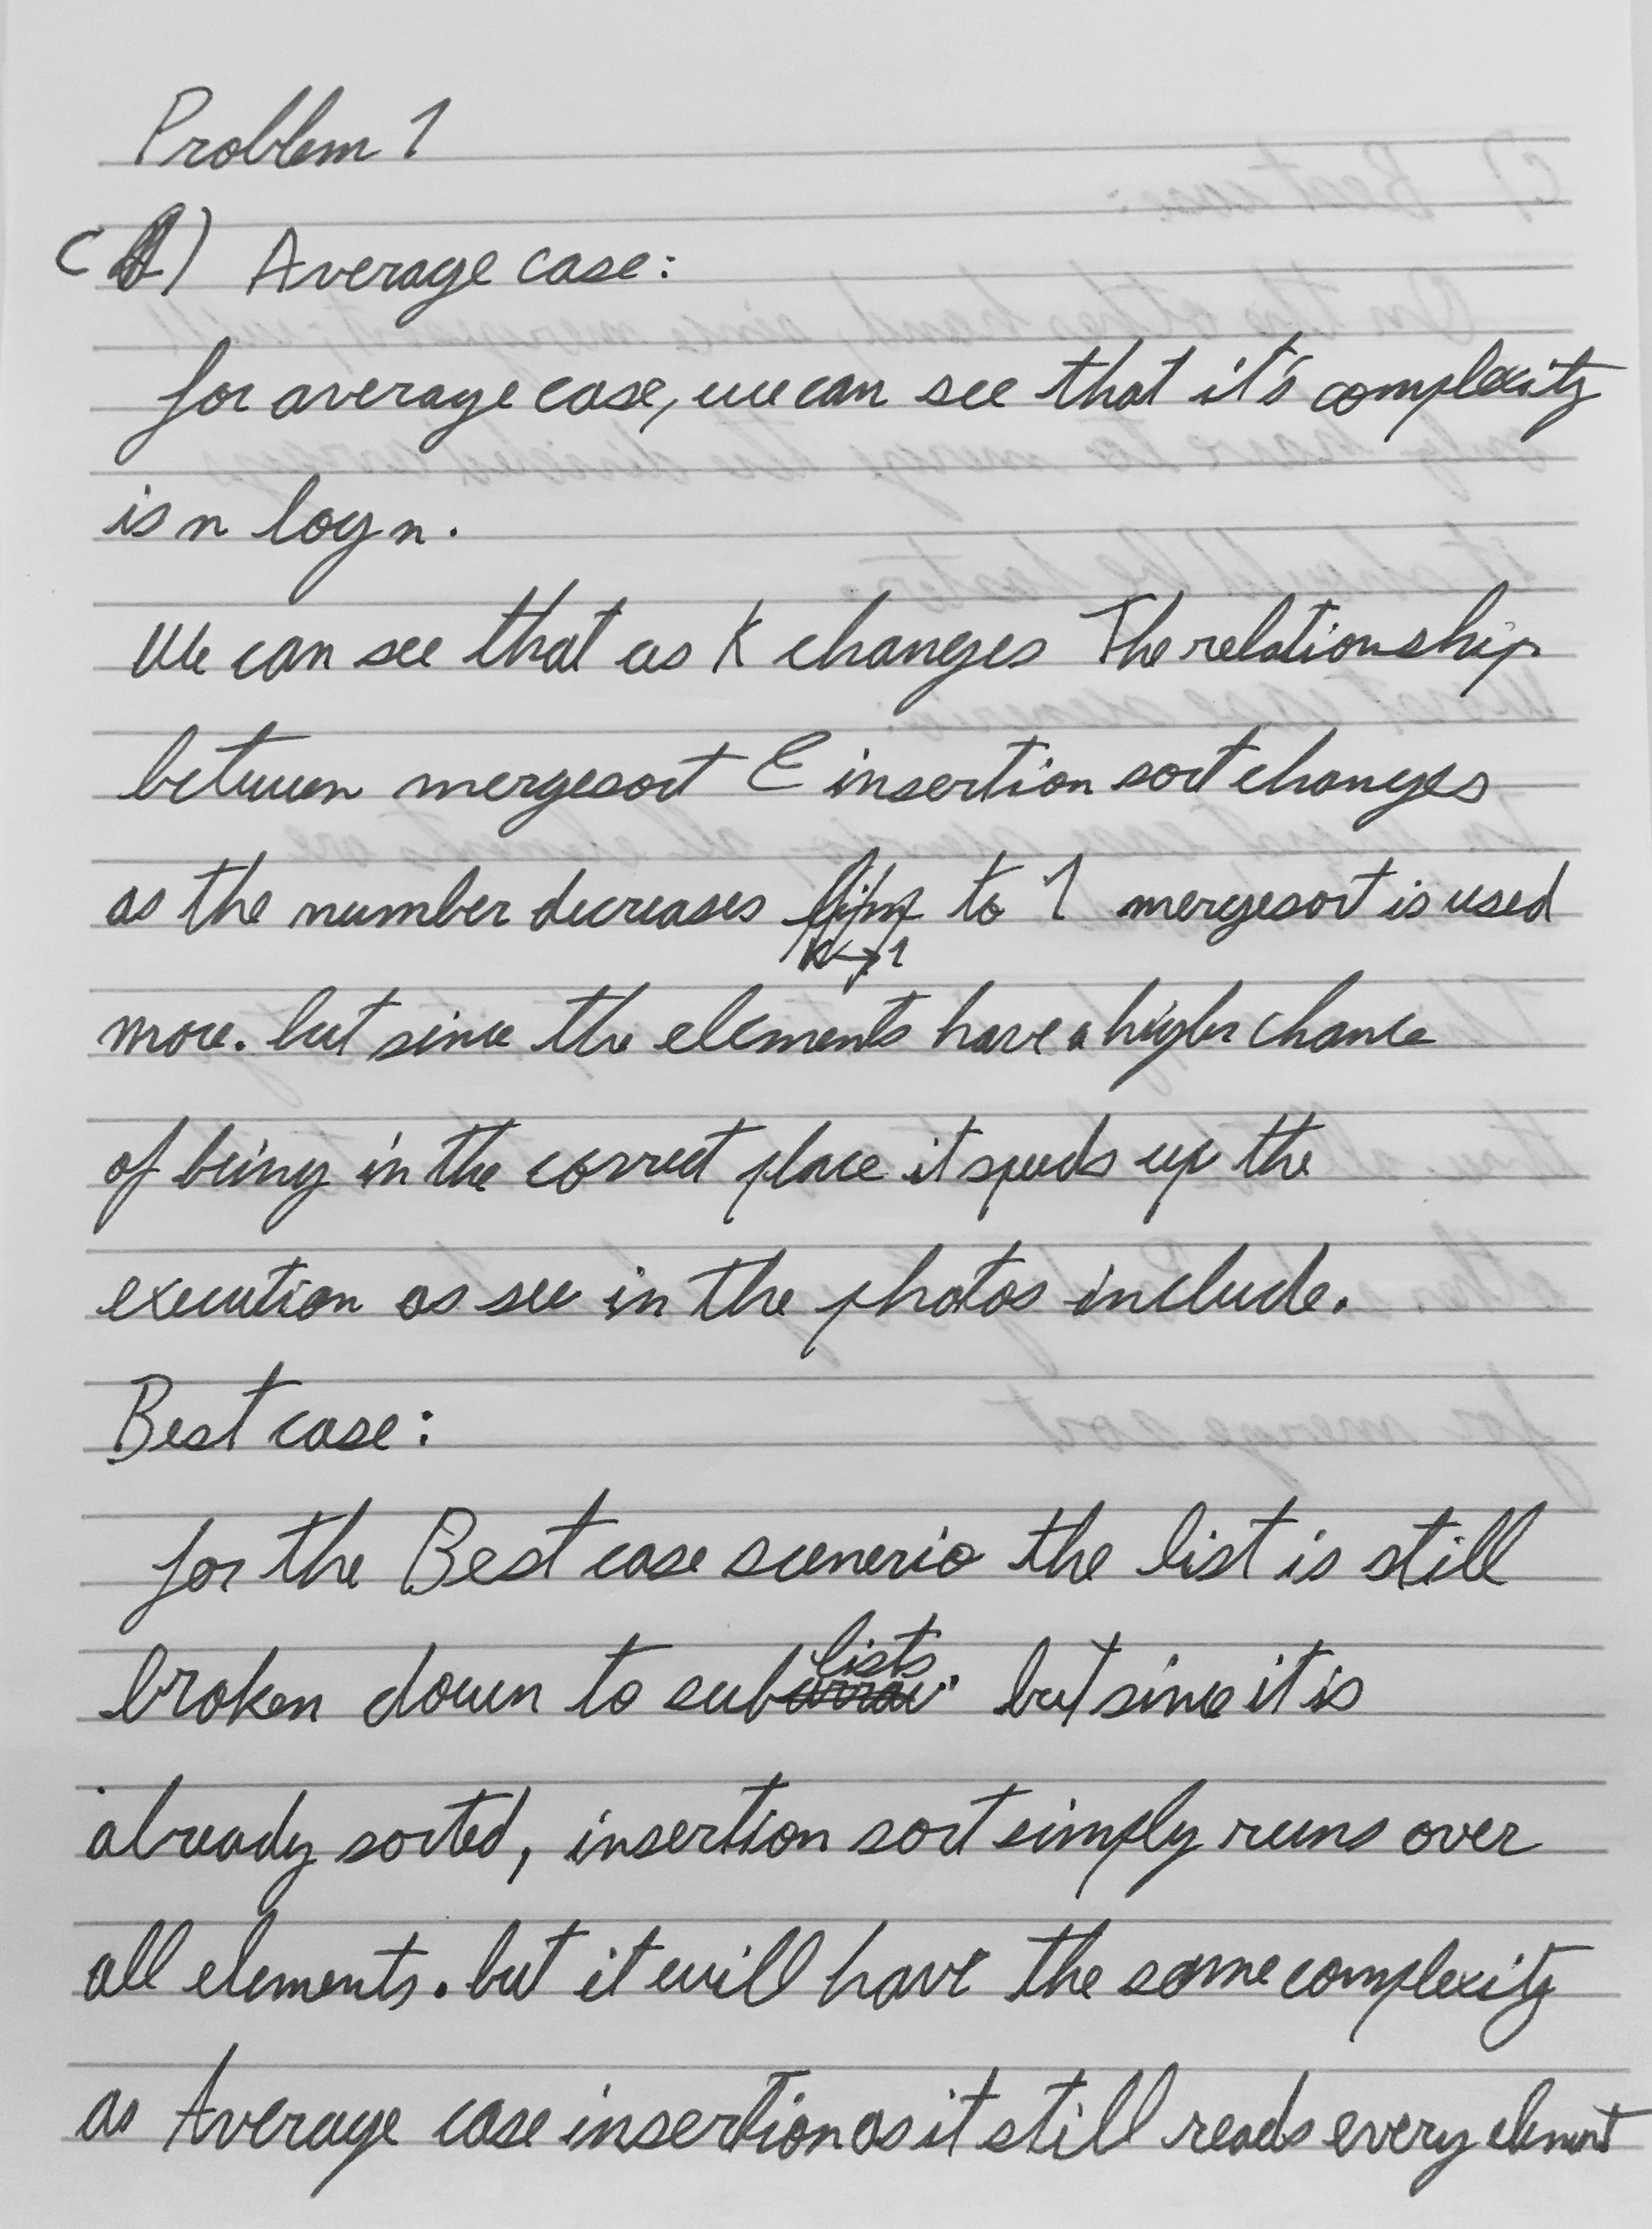 Problem 1
(d) Average case:
for average case, we can see that it's complexity
is n log n.
We can see that as K changes The relationship
between mergesort & insertion sort changes
as the number decreases to 1 mergesort is used
k→1
more. but since the elements have a higher chance
of being in the correct place it speeds up the
execution as see in the photos include.
Best case:
for the Best case scenerio the list is still
lists
broken down to sub but since it is
already sorted, insertion sort simply runs over
all elements. but it will have the same complexity
as Average case insertion as it still reads every element